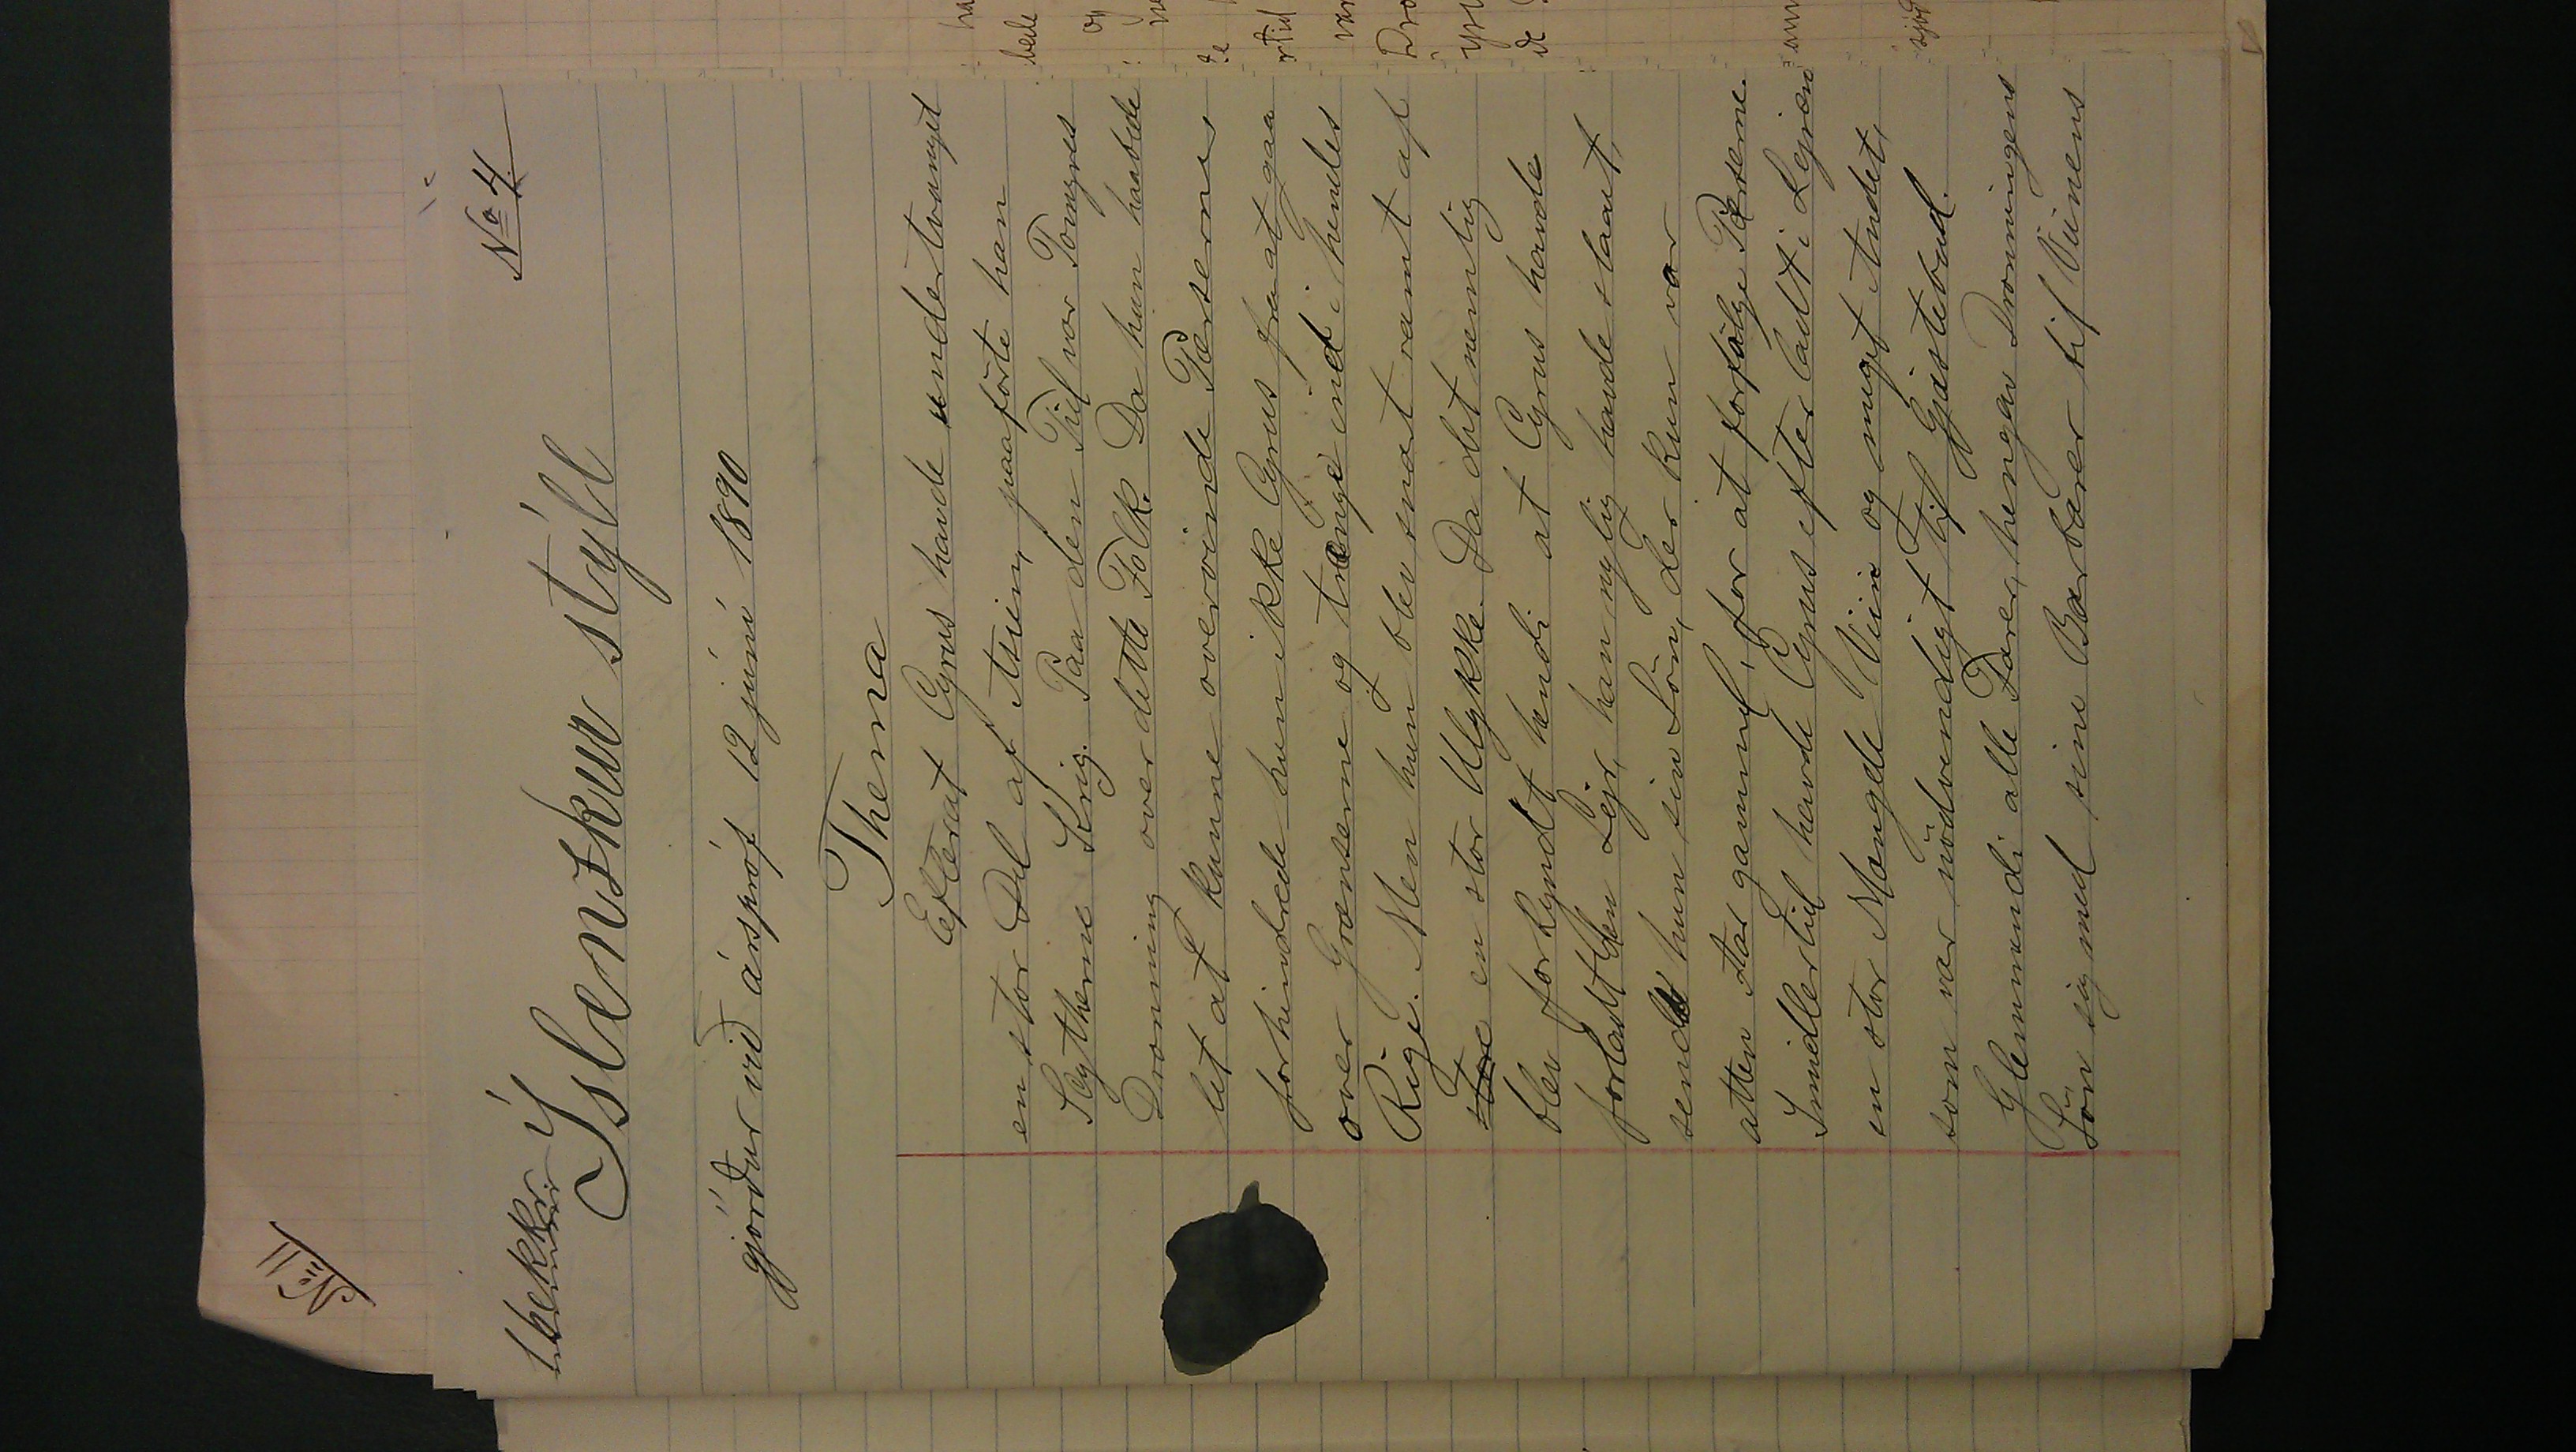 No II
No 4
1 bekkr
Íslenzkur stýll
gjörður við árspróf 12 júní 1890
Thema
Efterat Cyrus havde undertvunget
en stor Del af Asien, paaförte han
Scytherne Krig. Paa den Tid var Tomyres
Dronning over dette Folk. Da hun haabede
let at kunne overvinde Perserne,
forhindrede hun ikke Cyrus fra at gaa
over Grænserne og trænge ind i hendes
Rige. Men hun blev snart ramt af
store en stor Ulykke. Da det nemlig
blev forkyndt hendi at Cyrus havde
forladt den Lejr, han nylig havde slaaet,
sendte hun sin Sön, der kun var
atten Aar gammel, for at forfölge Perserne.
Imidlertid havde Cyrus efterladt i Lejren
en stor Mængde Viin og meget Andet,
som var nödvendigt til Gjæstebud.
Glemmende alle Farer, hengav Dronningens
Sön sig med sine Barbarer til Vinens